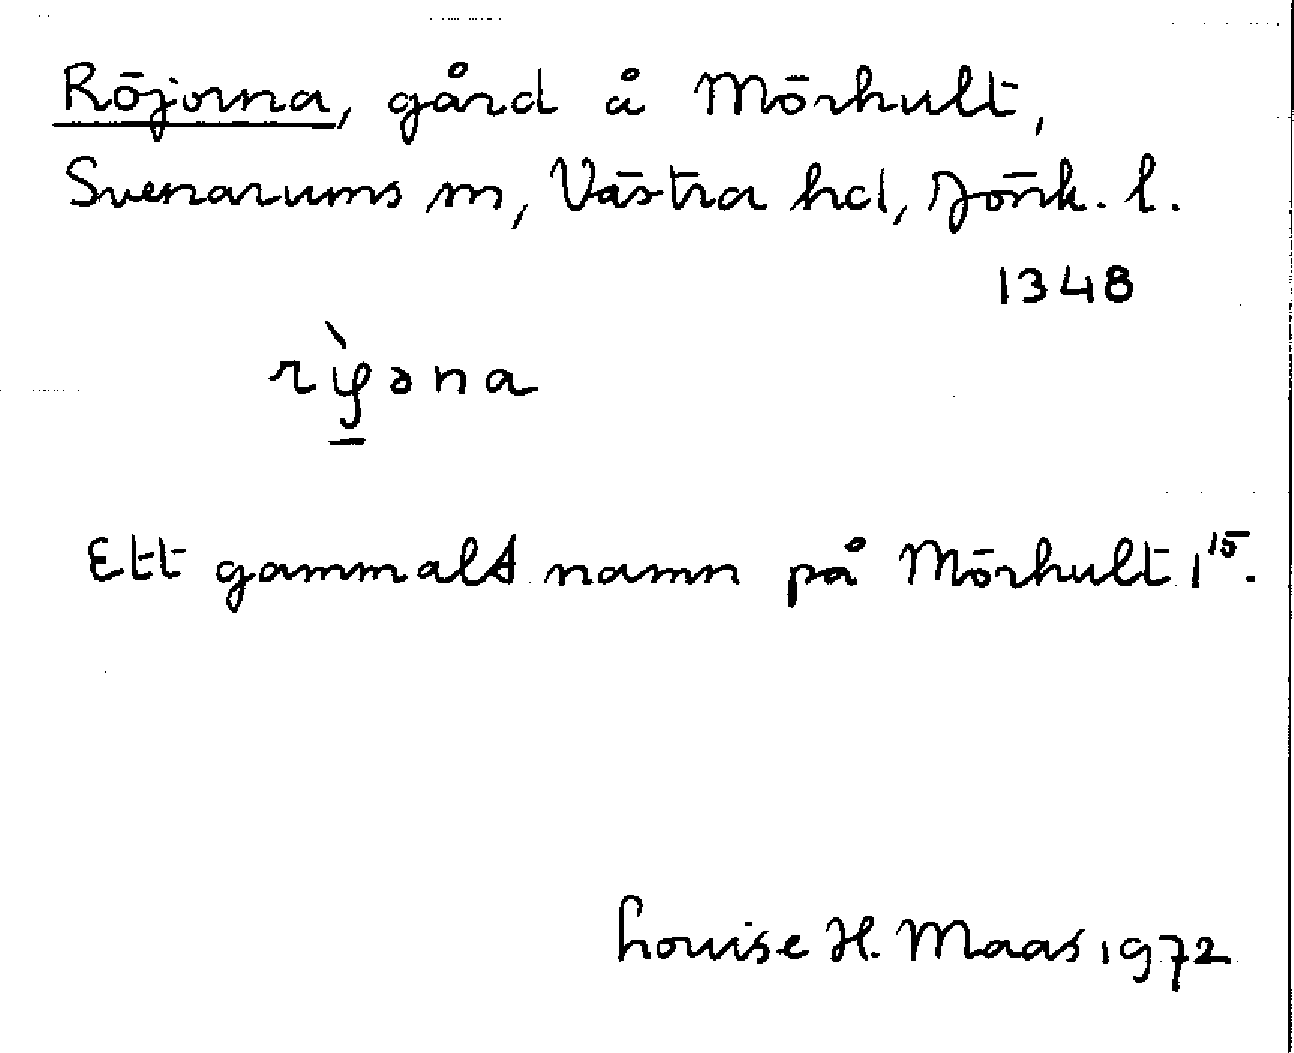 Röjorna, gård å Mörhult,
Svenarums sn, Västra hd, Jönk. l.
1348
Ett gammalt namn på Mörhult 1¹⁵.
Louise H. Maas 1972